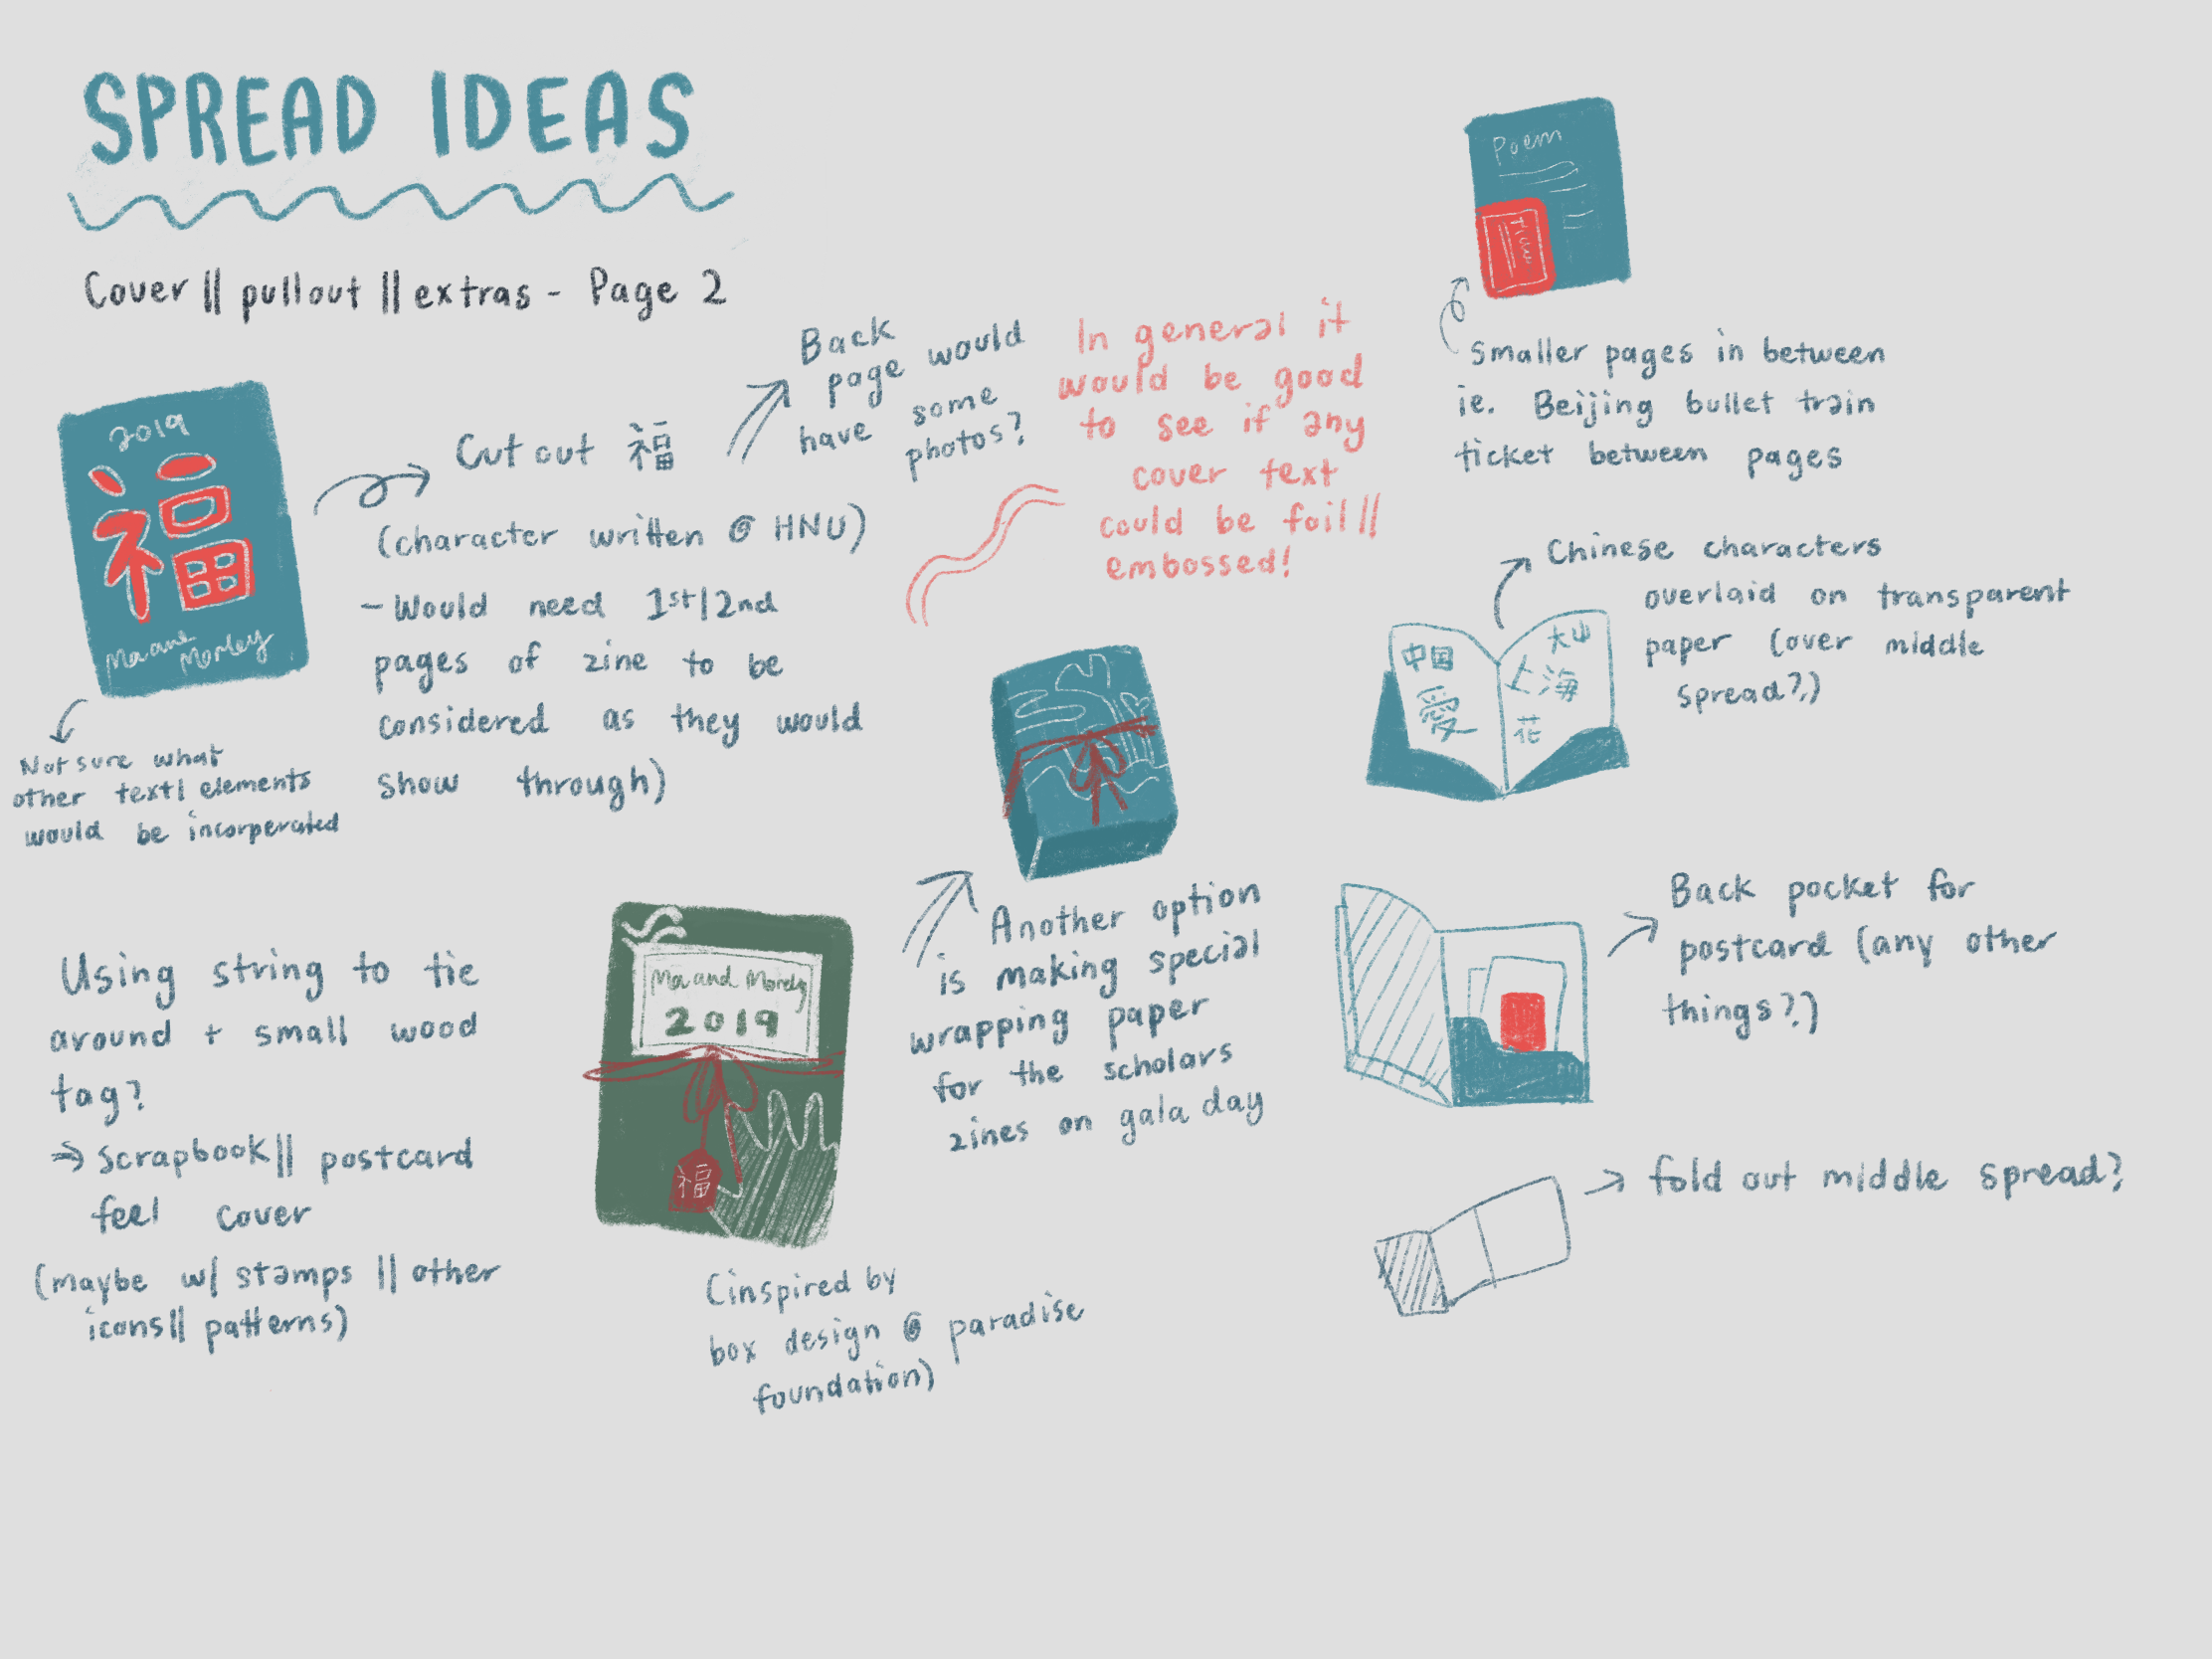 SPREAD IDEAS
Cover || pullout || extras - Page 2
2019
福
Ma and
Morley
Not sure what
other text/ elements
would be incorperated
Cut out 福
(character written @ HNU)
- Would need 1st/2nd
pages of zine to be
considered as they would
show through)
Back
page would
have some
photos?
In general it
would be good
to see if any
cover text
could be foil||
embossed!
Poem
Ticket
Smaller pages in between
ie. Beijing bullet train
ticket between pages
Chinese characters
overlaid on transparent
paper (over middle
spread?)
中国
愛
大山
上海
花
Using string to tie
around + small wood
tag?
⇒ scrapbook|| postcard
feel cover
(maybe w/ stamps || other
icons|| patterns)
Ma and Morley
2019
福
(inspired by
box design @ paradise
foundation)
Another option
is making special
wrapping paper
for the scholars
zines on gala day
Back pocket for
postcard (any other
things?)
fold out middle spread?